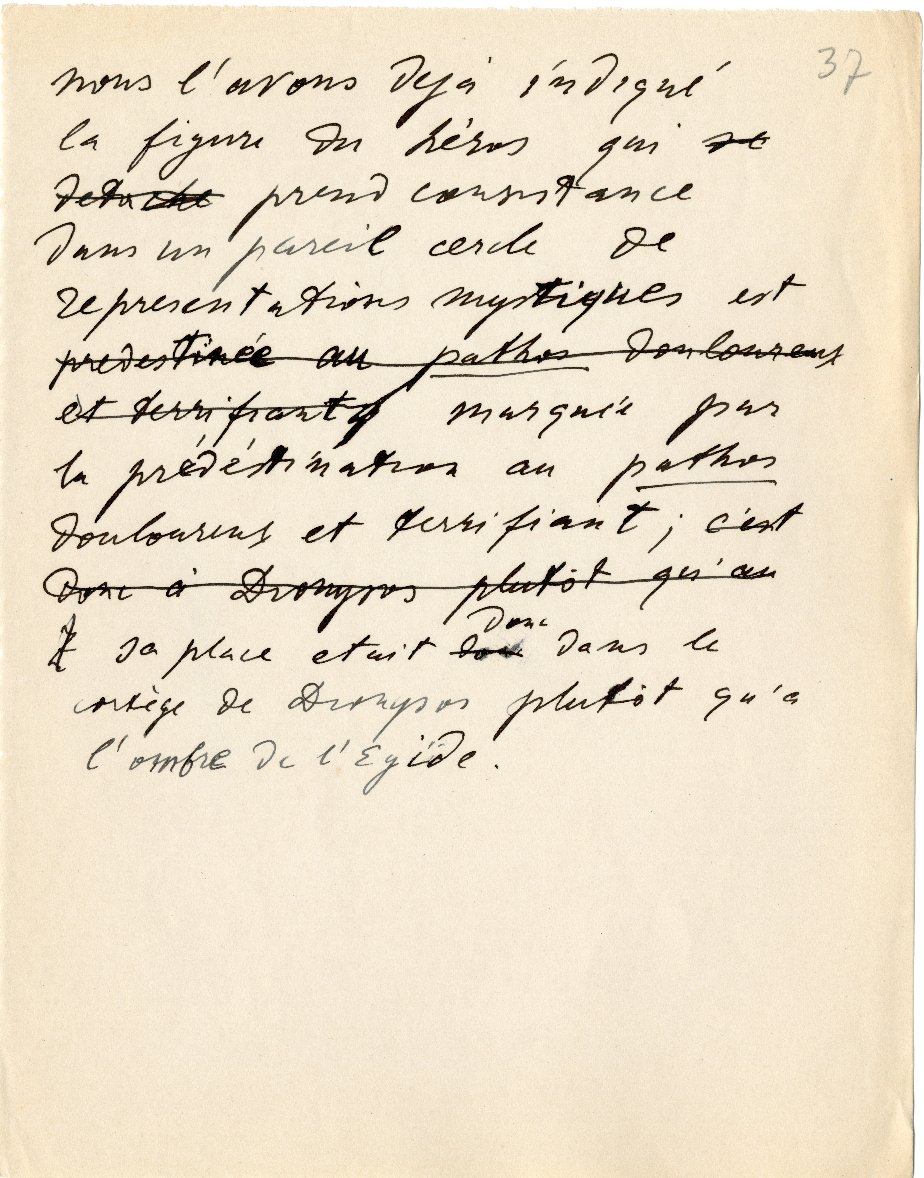 37
nous l'avons dejà indiqué
la figure du héros qui se
detache prend consistance
dans un pareil cercle de
representations mystiques est
predestinée au pathos douloureux
et terrifiant, marquée par
la prédéstination au pathos
douloureux et terrifiant ; c'est
donc à Dionysos plutôt qu'au
donc
sa place etait dans le
cortège de Dionysos plutôt qu'a
l'ombre de l'Egide.